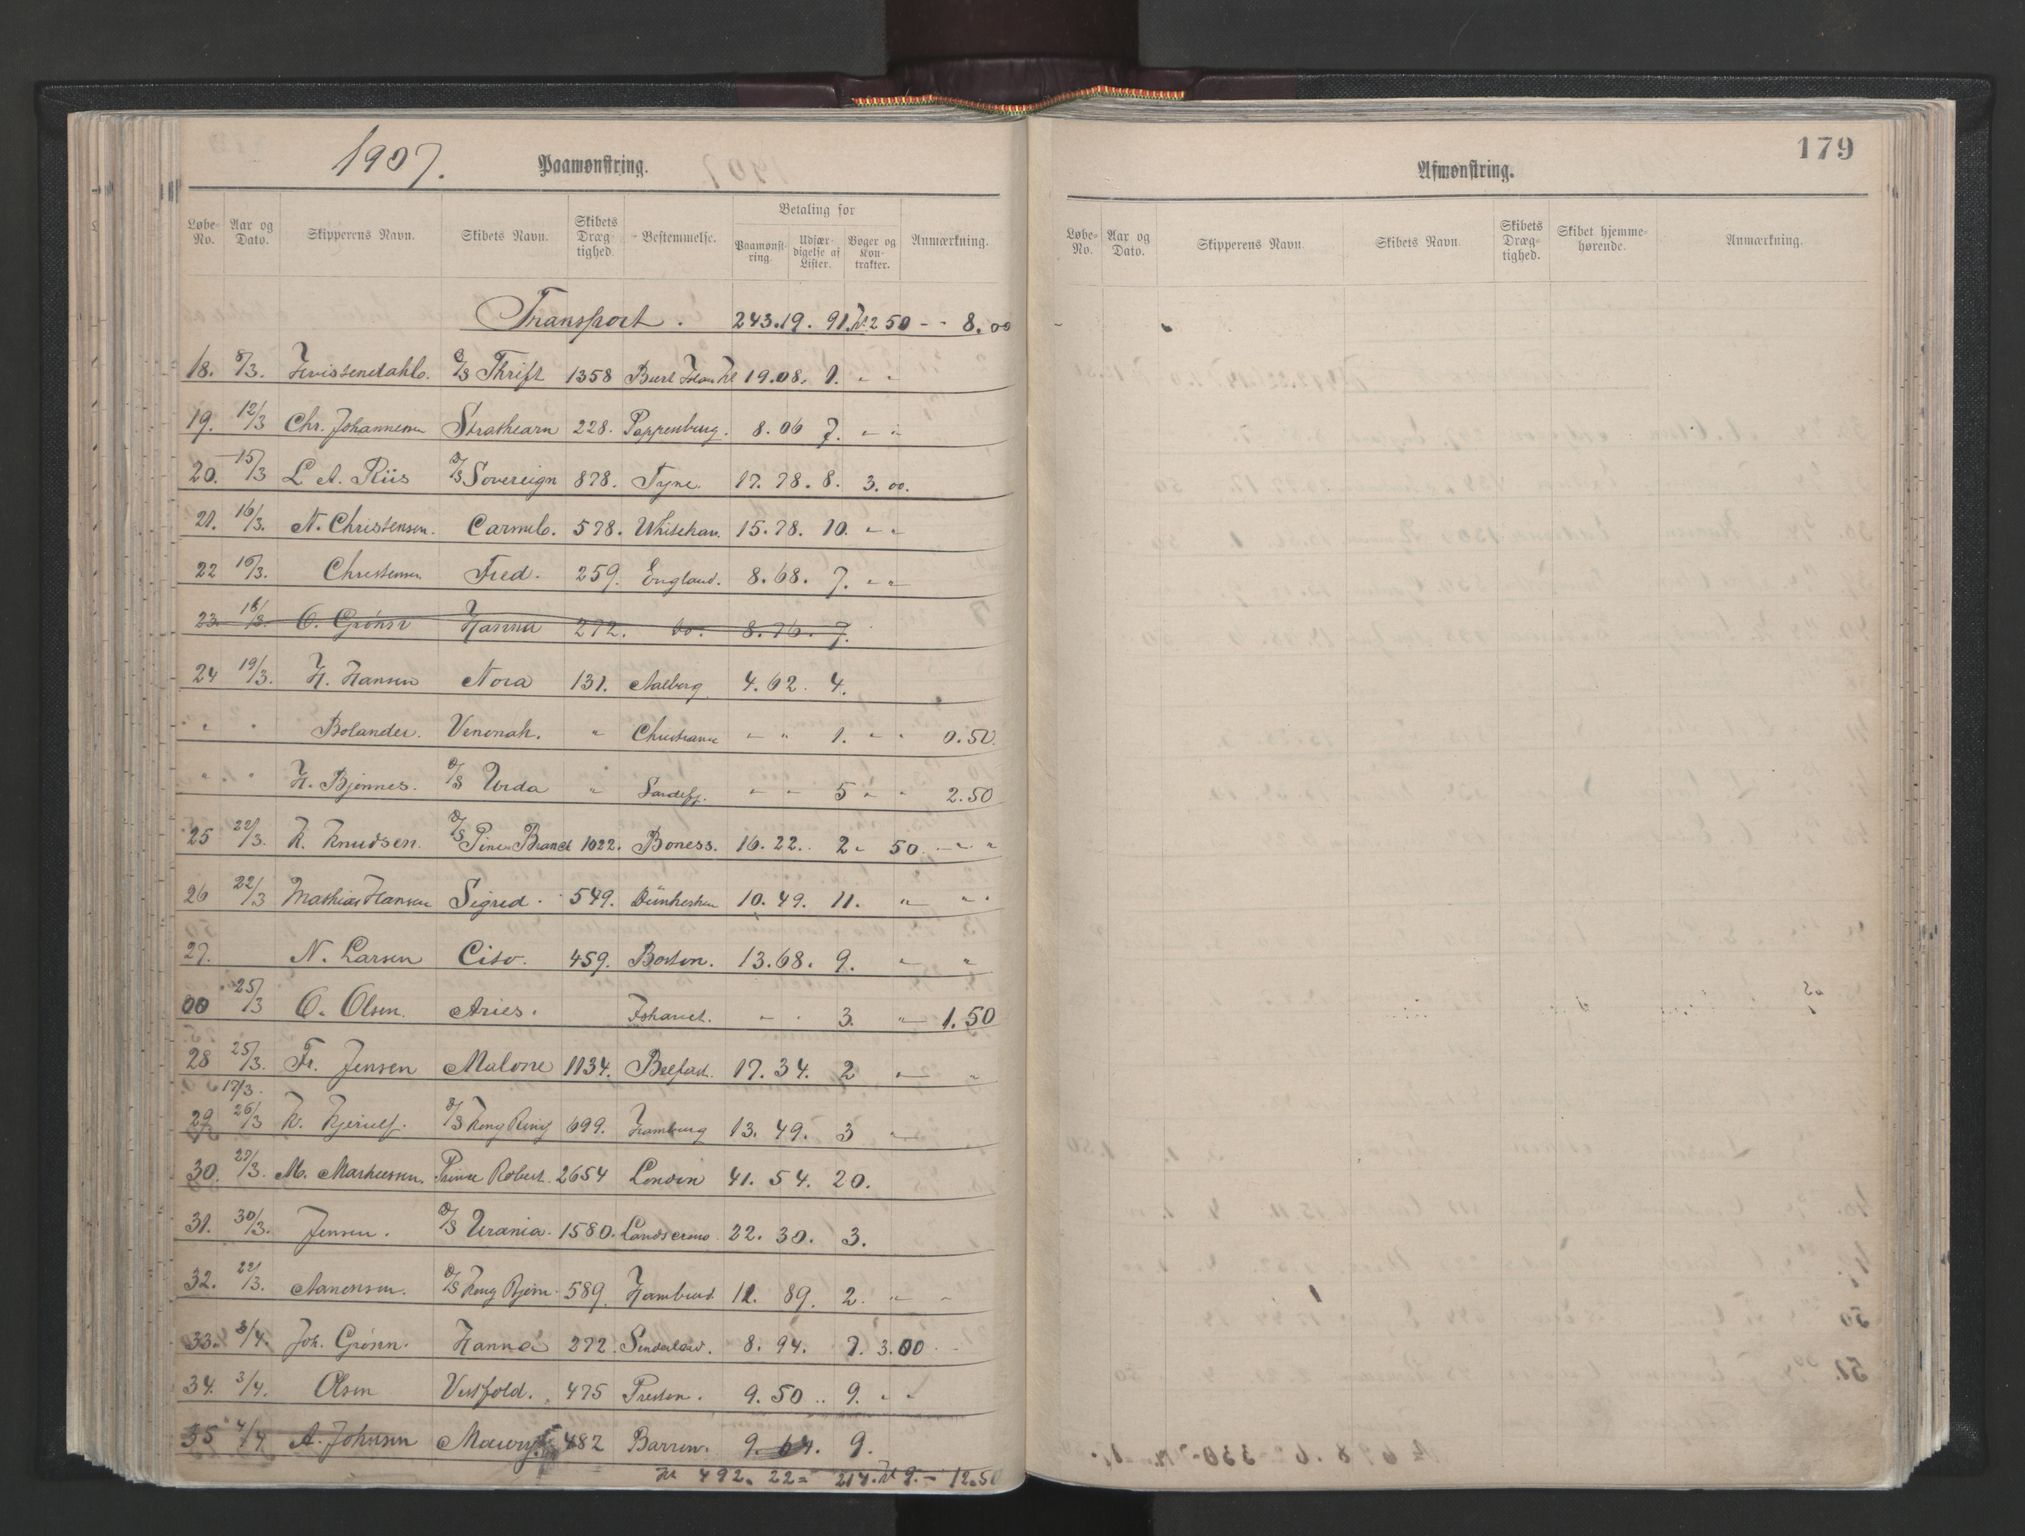 1907.
Paamønstring.
Løbe-No. Aar og Dato. Skipperens Navn. Skibets Navn. Skibets Dræg-tighed. Bestemmelse. Betaling for Paamønst-ring. Udfær-digelse af Lister. Bøger og Kon-trakter. Anmærkning.
Transport. 243.19. 91. 2 50 - - 8.00
18. 8/3. D/S Thrift 1358 19.08. 1. " "
19. 12/3 Chr. Johannessen Strathearn 228. Pappenburg. 8.06 7. " "
20. 15/3 L A. Riis D/S Sovereign 878. Tyne. 17.78. 8. 3.00.
21. 16/3. N. Christensen. 578. 15.78. 10. " "
22 16/3. Christensen Fred. 259. England. 8.68. 7. " "
23. 18/3. O. Grønn Hanna 272. Do. 8.76. 7.
24 19/3. H. Hansen Nora 131. Aalborg 4.62. 4.
" " Bolander. Venonah. " " " 1. " " 0.50.
" " H. Bjønnes. D/S Urda " Sandefj. " " 5 " " 2.50
25 22/3. K. Knudsen. D/S Pine Branch 1022. Boness. 16.22. 2 " 50. " "
26 22/3 Mathias Hansen Sigrid. 549. 10.49. 11. " "
27. N. Larsen Cito. 459. Boston. 13.68. 9. " "
00 25/3 O. Olsen. Aries. " " 3. " 1.50
28 25/3. Fr. Jensen Malone 1134. Belfast. 17.34. 2 " "
17/3.
29 26/3 K. Kjerulf. D/S Kong Ring 699. Hamburg 13.49. 3 "
30. 27/3. M. Mathiesen. Prince Robert. 2654 London 41.54. 20.
31. 30/3. Jensen. D/S Urania. 1580. 22.30. 3.
32. 22/3. Aanensen. D/S Kong Bjørn. 589. 11.89. 2. " "
33. 3/4. Joh. Grønn. Hanna 272. Sunderland. 8.94. 7. 3.00. -
34. 3/4. Olsen Vestfold. 475 Preston. 9.50.. 9. " "
35 4/4 A. Johnsen 482 Barrow. 9.64. 9.
Kr 492.22= 214. Kr 9.- 12.50
179
Afmønstring.
Løbe-No. Aar og Dato. Skipperens Navn. Skibets Navn. Skibets Dræg-tighed. Skibet hjemme-hørende. Anmærkning.